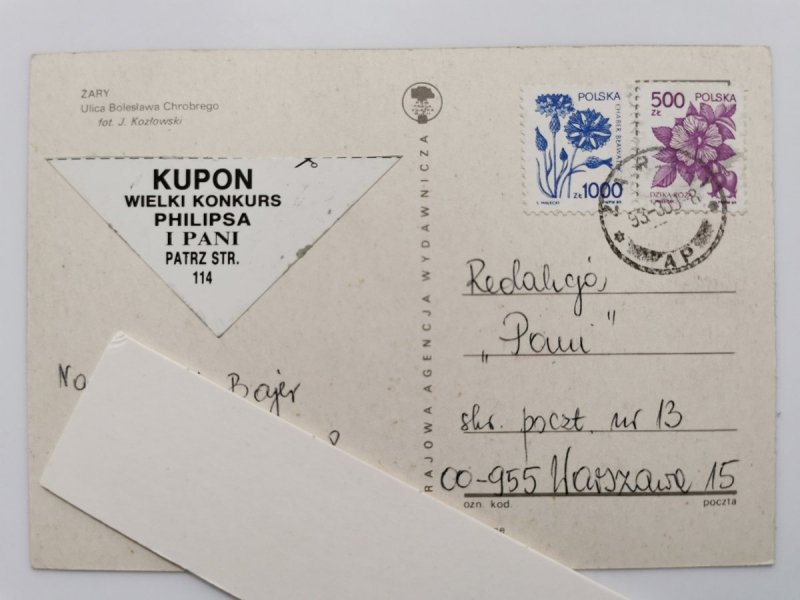 ŻARY
Ulica Bolesława Chrobrego
fot. J. Kozłowski
KUPON
WIELKI KONKURS
PHILIPSA
I PANI
PATRZ STR.
114
Bajer
RAJOWA AGENCJA WYDAWNICZA
POLSKA
CHABER BŁAWATEK
ZŁ 1000
500
ZŁ
POLSKA
DZIKA RÓŻA
AP
Redakcja
„Pani"
skr. poczt. nr 13
00-955 Warszawa 15
ozn. kod.
poczta